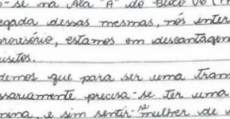 -se na Ala "A" do Bloco
egada dessas mesmas, nós enten
provisório, estamos em desvantagem
demos que para ser uma Tran
ssariamente precisa-se ter uma
e sim sentir-se mulher de v